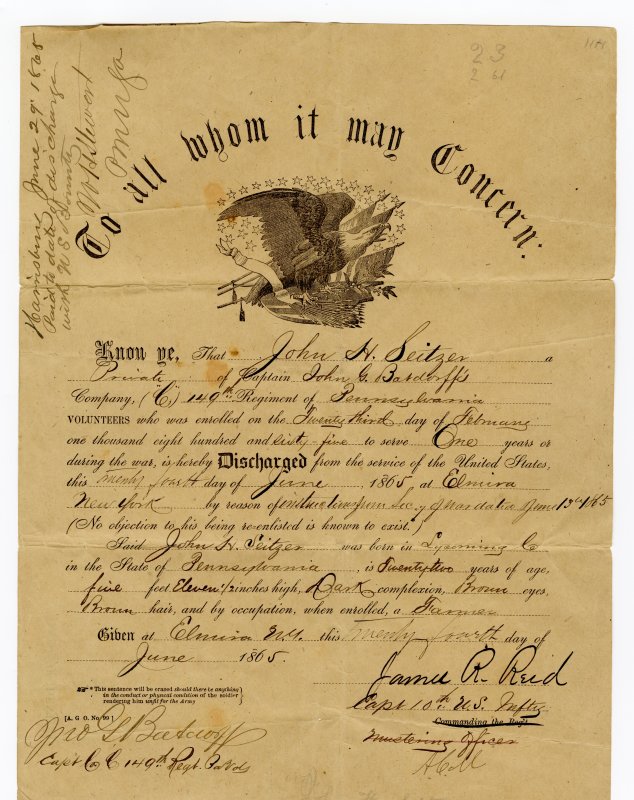 23
2 61
Harrisburg June 29" 1865
Paid to date of discharge
with U S Bounty
To all whom it may Concern:
Know ye, That John H. Seitzer a
Private of Captain John G. Batdorff's
Company, ("C,") 149th Regiment of Pennsylvania
VOLUNTEERS who was enrolled on the Twenty third day of February
one thousand eight hundred and sixty-five to serve One years or
during the war, is hereby Discharged from the service of the United States,
this Twenty fourth day of June, 1865, at Elmira
New York by reason of instructions from Secy of War dated June 13th 1865
(No objection to his being re-enlisted is known to exist.*)
Said John H. Seitzer was born in Lycoming Co
in the State of Pennsylvania, is Twenty two years of age,
five feet Eleven 1/2 inches high, Dark complexion, Brown eyes,
Brown hair, and by occupation, when enrolled, a Farmer
Given at Elmira N.Y. this Twenty fourth day of
June 1865.
James R. Reid
Capt 10th U.S. Infty
Commanding the Regt
Mustering Officer
A.C.M
*This sentence will be erased should there be anything
in the conduct or physical condition of the soldier
rendering him unfit for the Army
[A. G. O. No. 99]
Capt Co C 149th Regt. Pa Vols